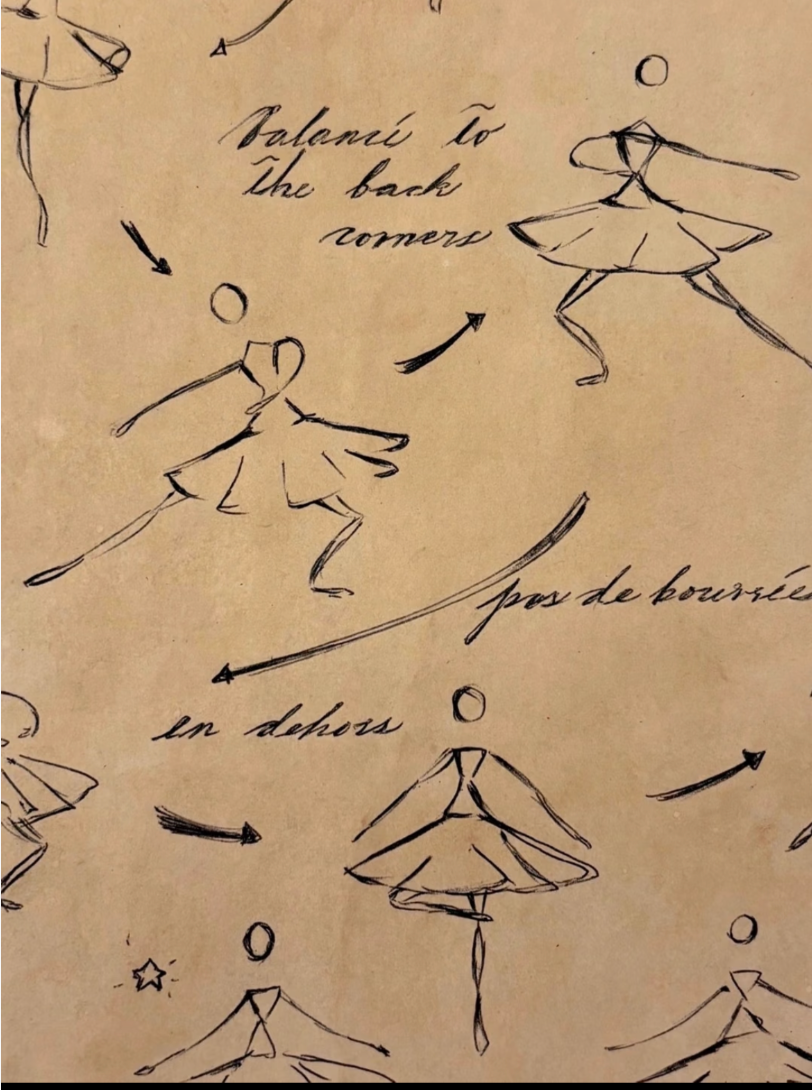 Balancé to
the back
corners
pas de bourrée
en dehors